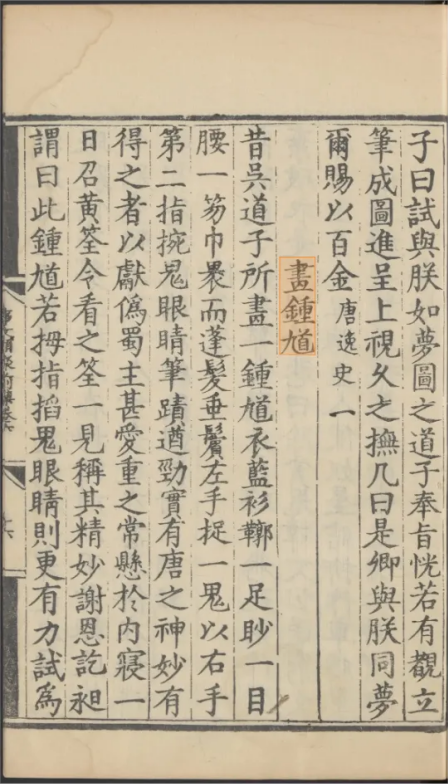 子曰試與朕如夢圖之道子奉旨恍若有觀立
筆成圖進呈上視久之撫几曰是卿與朕同夢
爾賜以百金 唐逸史 一
畫鍾馗
昔吳道子所畫一鍾馗衣藍衫鞹一足眇一目
腰一笏巾褁而蓬髮垂鬢左手捉一鬼以右手
第二指捥鬼眼睛筆蹟遒勁實有唐之神妙有
得之者以獻僞蜀主甚愛重之常懸於内寢一
日召黄筌令看之筌一見稱其精妙謝恩訖昶
謂曰此鍾馗若拇指掐鬼眼睛則更有力試爲